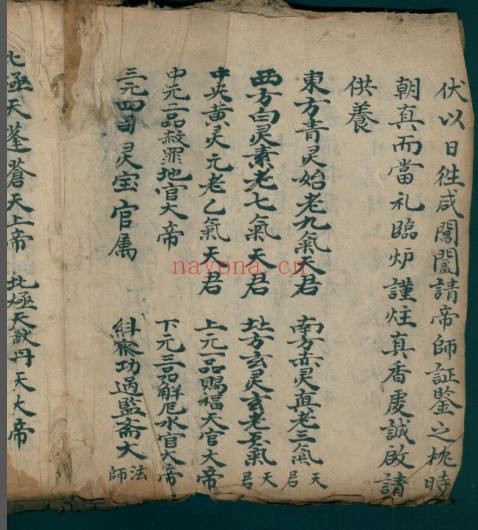 伏以日徃咸閶闔請帝師証鑒之時
朝真而當礼臨炉謹炷真香虔誠啟請
供養
東方青灵始老九氣天君 南方赤灵真老三氣天君
西方白灵素老七氣天君 北方玄灵玄老五氣天君
中央黄灵元老乙氣天君 上元一品賜福天官大帝
中元二品赦罪地官大帝 下元三品觧厄水官大帝
三元四司灵宝官属 糾察功過監斋大法師
北極天蓬蒼天上帝 北極天猷丹天大帝
nayona.cn